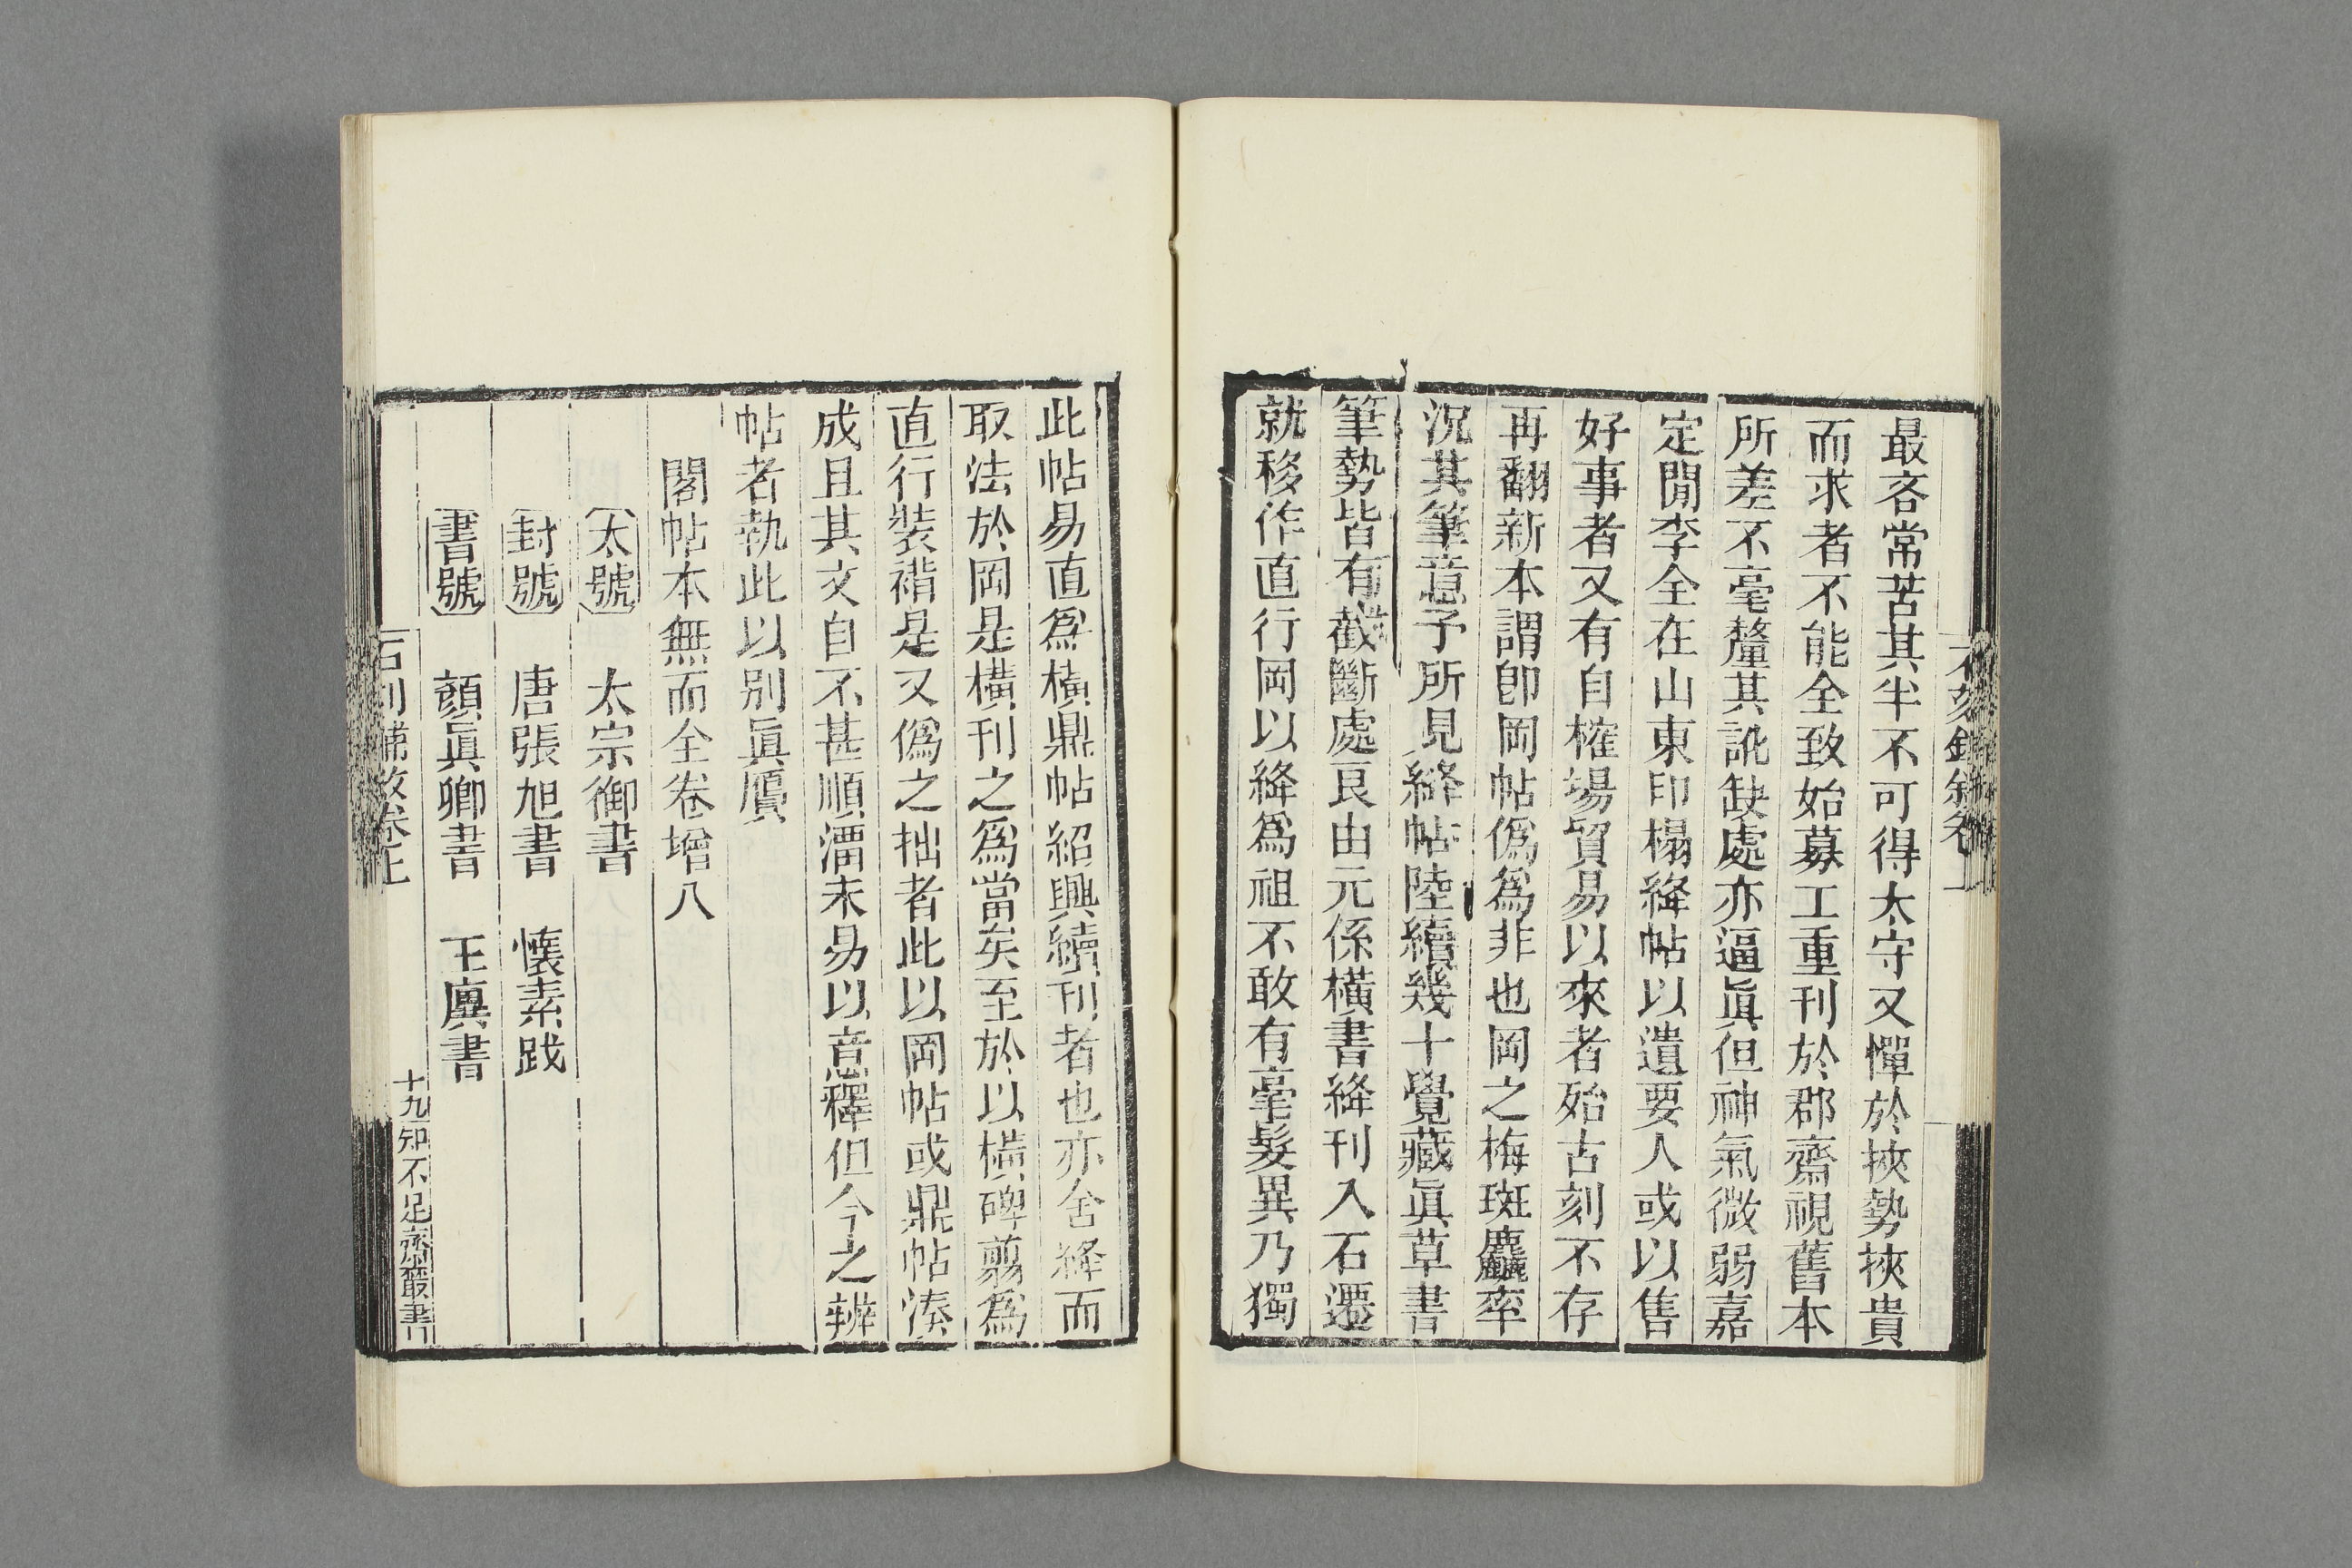 最吝常苦其半不可得太守又憚於挾勢挾貴
而求者不能全致始募工重刊於郡齋視舊本
所差不毫釐其訛缺處亦逼眞但神氣微弱嘉
定閒李全在山東印榻絳帖以遺要人或以售
好事者又有自榷場貿易以來者殆古刻不存
再翻新本謂卽岡帖僞爲非也岡之梅斑麤牽
況其筆意予所見絳帖陸續幾十覺藏眞草書
筆勢皆有截斷處良由元係橫書絳刊入石遷
就移作直行岡以絳爲祖不敢有毫髮異乃獨
此帖易直爲橫鼎帖紹興續刊者也亦舍絳而
取法於岡是橫刊之爲當矣至於以橫碑翦爲
直行裝褙是又僞之拙者此以岡帖或鼎帖湊
成且其文自不甚順溜未易以意釋但今之辨
帖者執此以別眞贋
閣帖本無而全卷增八
太號　太宗御書
封號　唐張旭書　懷素跋
書號　顔眞卿書　王廙書
石刻鋪敘卷上
十九知不足齋叢書